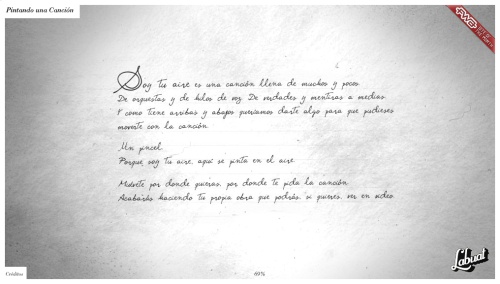 Pintando una Canción
FWA
SITE OF
THE MONTH
Soy tu aire es una canción llena de muchos y pocos.
De orquestas y de hilos de voz. De verdades y mentiras a medias.
Y como tiene arribas y abajos queríamos darte algo para que pudieses
moverte con la canción.
Un pincel.
Porque, soy tu aire, aquí se pinta en el aire.
Muévete por donde quieras, por donde te pida la canción.
Acabarás haciendo tu propia obra que podrás, si quieres, ver en video.
Labuat
Créditos
69%